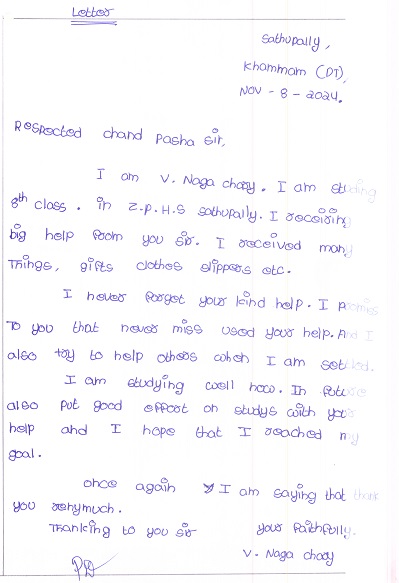 Letter
Sathupally,
Khammam (DT),
NOV - 8 - 2024.
Respected chand Pasha Sir,
I am V. Naga chary. I am studing
8th class. in Z.P.H.S Sathupally. I receiring
big help from you sir. I received many
Things, gifts clothes slippers etc.
I never forgot your kind help. I promiss
To you that never miss used your help. And I
also try to help others when I am settled.
I am studying well now. In future
also put good effort on studys with your
help and I hope that I reached my
goal.
once again I am saying that thank
you verymuch.
Thanking to you sir your faithfully.
V. Naga chary